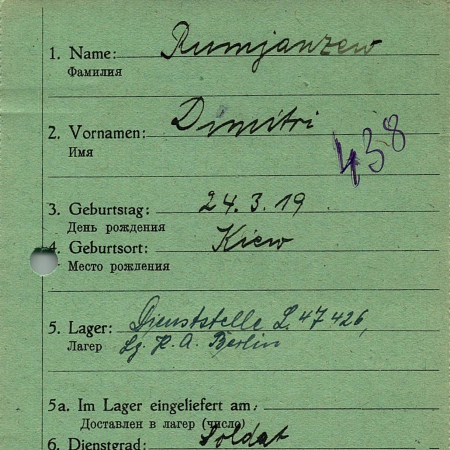 1. Name: Rumjanzew
Фамилия
2. Vornamen: Dimitri
Имя
438
3. Geburtstag: 24. 3. 19
День рождения
4. Geburtsort: Kiew
Место рождения
5. Lager: Dienststelle L. 47 426,
Лагер Lg. P. A. Berlin
5a. Im Lager eingeliefert am:
Доставлен в лагер (число)
6. Dienstgrad: Soldat